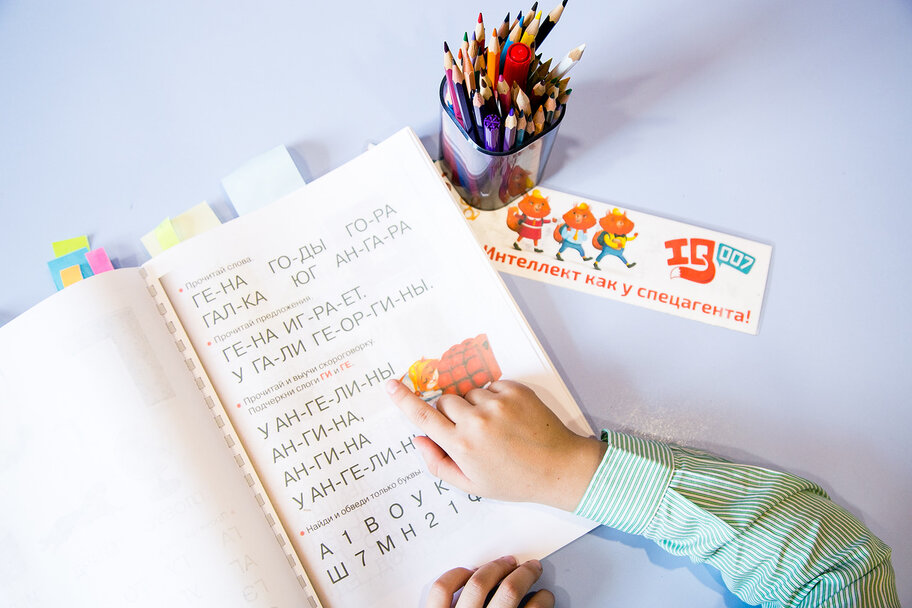 Прочитай слова.
ГЕ-НА ГО-ДЫ ГО-РА
ГАЛ-КА ЮГ АН-ГА-РА
Прочитай предложения.
ГЕ-НА ИГ-РА-ЕТ.
У ГА-ЛИ ГЕ-ОР-ГИ-НЫ.
Прочитай и выучи скороговорку.
Подчеркни слоги ГИ и ГЕ.
У АН-ГЕ-ЛИ-НЫ
АН-ГИ-НА,
АН-ГИ-НА
У АН-ГЕ-ЛИ-Н
Найди и обведи только буквы.
А 1 В О У К
Ш 7 М Н 2 1
IQ 007
Интеллект как у спецагента!